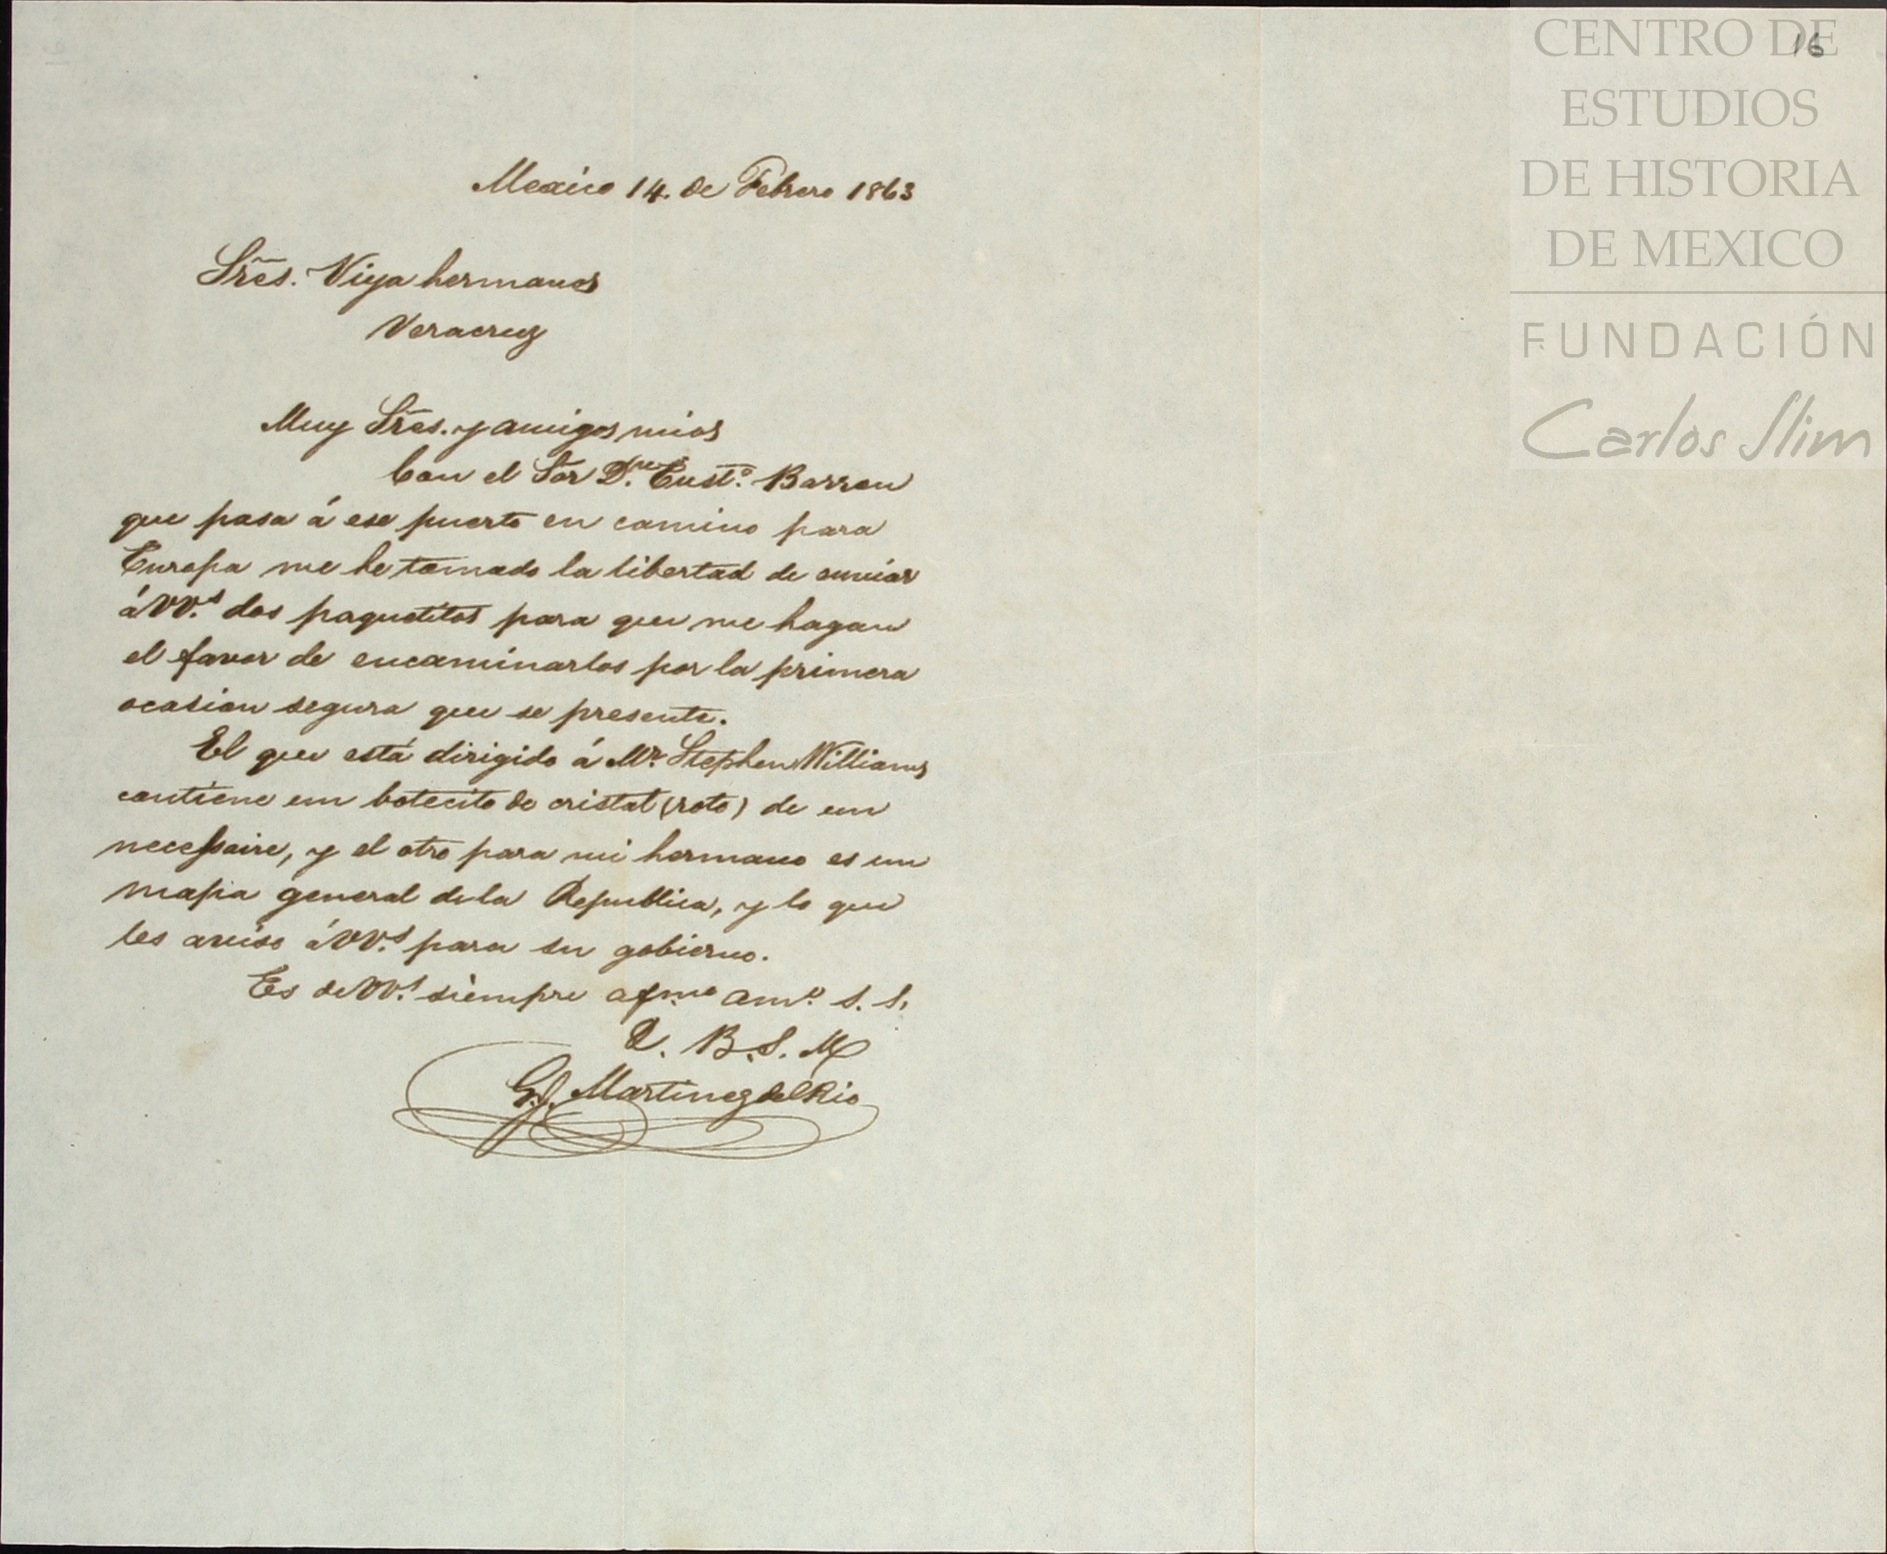 16
CENTRO DE
ESTUDIOS
DE HISTORIA
DE MEXICO
FUNDACIÓN
Carlos Slim
Mexico 14. de Febrero 1863
Sres. Viya hermanos
Veracruz
Muy Sres. y amigos mios
Con el Sor Dn. Eusto. Barron
que pasa á ese puerto en camino para
Europa me he tomado la libertad de enviar
á VV.s dos paquetitos para que me hagan
el favor de encaminarlos por la primera
ocasion segura que se presente.
El que está dirigido á Mr. Stephen Williams
contiene un botecito de cristal (roto) de un
necessaire, y el otro para mi hermano es un
mapa general de la Republica, y lo que
les aviso á VV.s para su gobierno.
Es de VV.s siempre afmo amo. S. S.
Q. B. S. M
Martinez del Rio